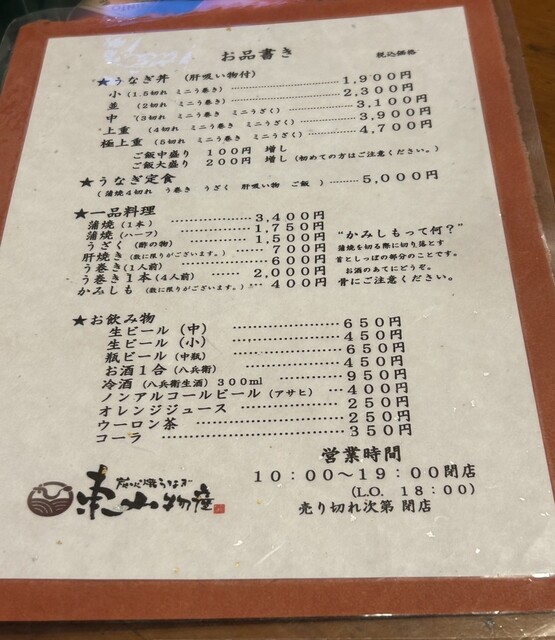 お品書き 税込価格
★うなぎ丼 (肝吸い物付)
小 (1.5切れ ミニう巻き) 1,900円
並 (2切れ ミニう巻き) 2,300円
中 (3切れ ミニう巻き ミニうざく) 3,100円
上重 (4切れ ミニう巻き ミニうざく) 3,900円
極上重 (5切れ ミニう巻き ミニうざく) 4,700円
ご飯中盛り 100円 増し
ご飯大盛り 200円 増し (初めての方はご注意ください。)
★うなぎ定食
(蒲焼4切れ う巻き うざく 肝吸い物 ご飯) 5,000円
★一品料理
蒲焼 (1本) 3,400円
蒲焼 (ハーフ) 1,750円
うざく (酢の物) 1,500円
肝焼き (数に限りがございます。) 700円
う巻き(1人前) 600円
う巻き1本(4人前) 2,000円
かみしも (数に限りがございます。) 400円
"かみしもって何?"
蒲焼を切る際に切り落とす
首としっぽの部分のことです。
お酒のあてにどうぞ。
骨にご注意ください。
★お飲み物
生ビール (中) 650円
生ビール (小) 450円
瓶ビール (中瓶) 650円
お酒1合 (八兵衛) 450円
冷酒 (八兵衛生酒) 300ml 950円
ノンアルコールビール (アサヒ) 400円
オレンジジュース 250円
ウーロン茶 250円
コーラ 350円
営業時間
10:00〜19:00閉店
(L.O. 18:00)
売り切れ次第 閉店
炭火焼うなぎ
東山物産